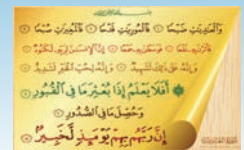 وَالْعَادِيَاتِ ضَبْحًا ۝ فَالْمُورِيَاتِ قَدْحًا ۝ فَالْمُغِيرَاتِ صُبْحًا ۝
فَأَثَرْنَ بِهِ نَقْعًا ۝ فَوَسَطْنَ بِهِ جَمْعًا ۝ إِنَّ الْإِنْسَانَ لِرَبِّهِ لَكَنُودٌ ۝
وَإِنَّهُ عَلَىٰ ذَٰلِكَ لَشَهِيدٌ ۝ وَإِنَّهُ لِحُبِّ الْخَيْرِ لَشَدِيدٌ ۝
أَفَلَا يَعْلَمُ إِذَا بُعْثِرَ مَا فِي الْقُبُورِ ۝
وَحُصِّلَ مَا فِي الصُّدُورِ ۝
إِنَّ رَبَّهُمْ بِهِمْ يَوْمَئِذٍ لَخَبِيرٌ ۝